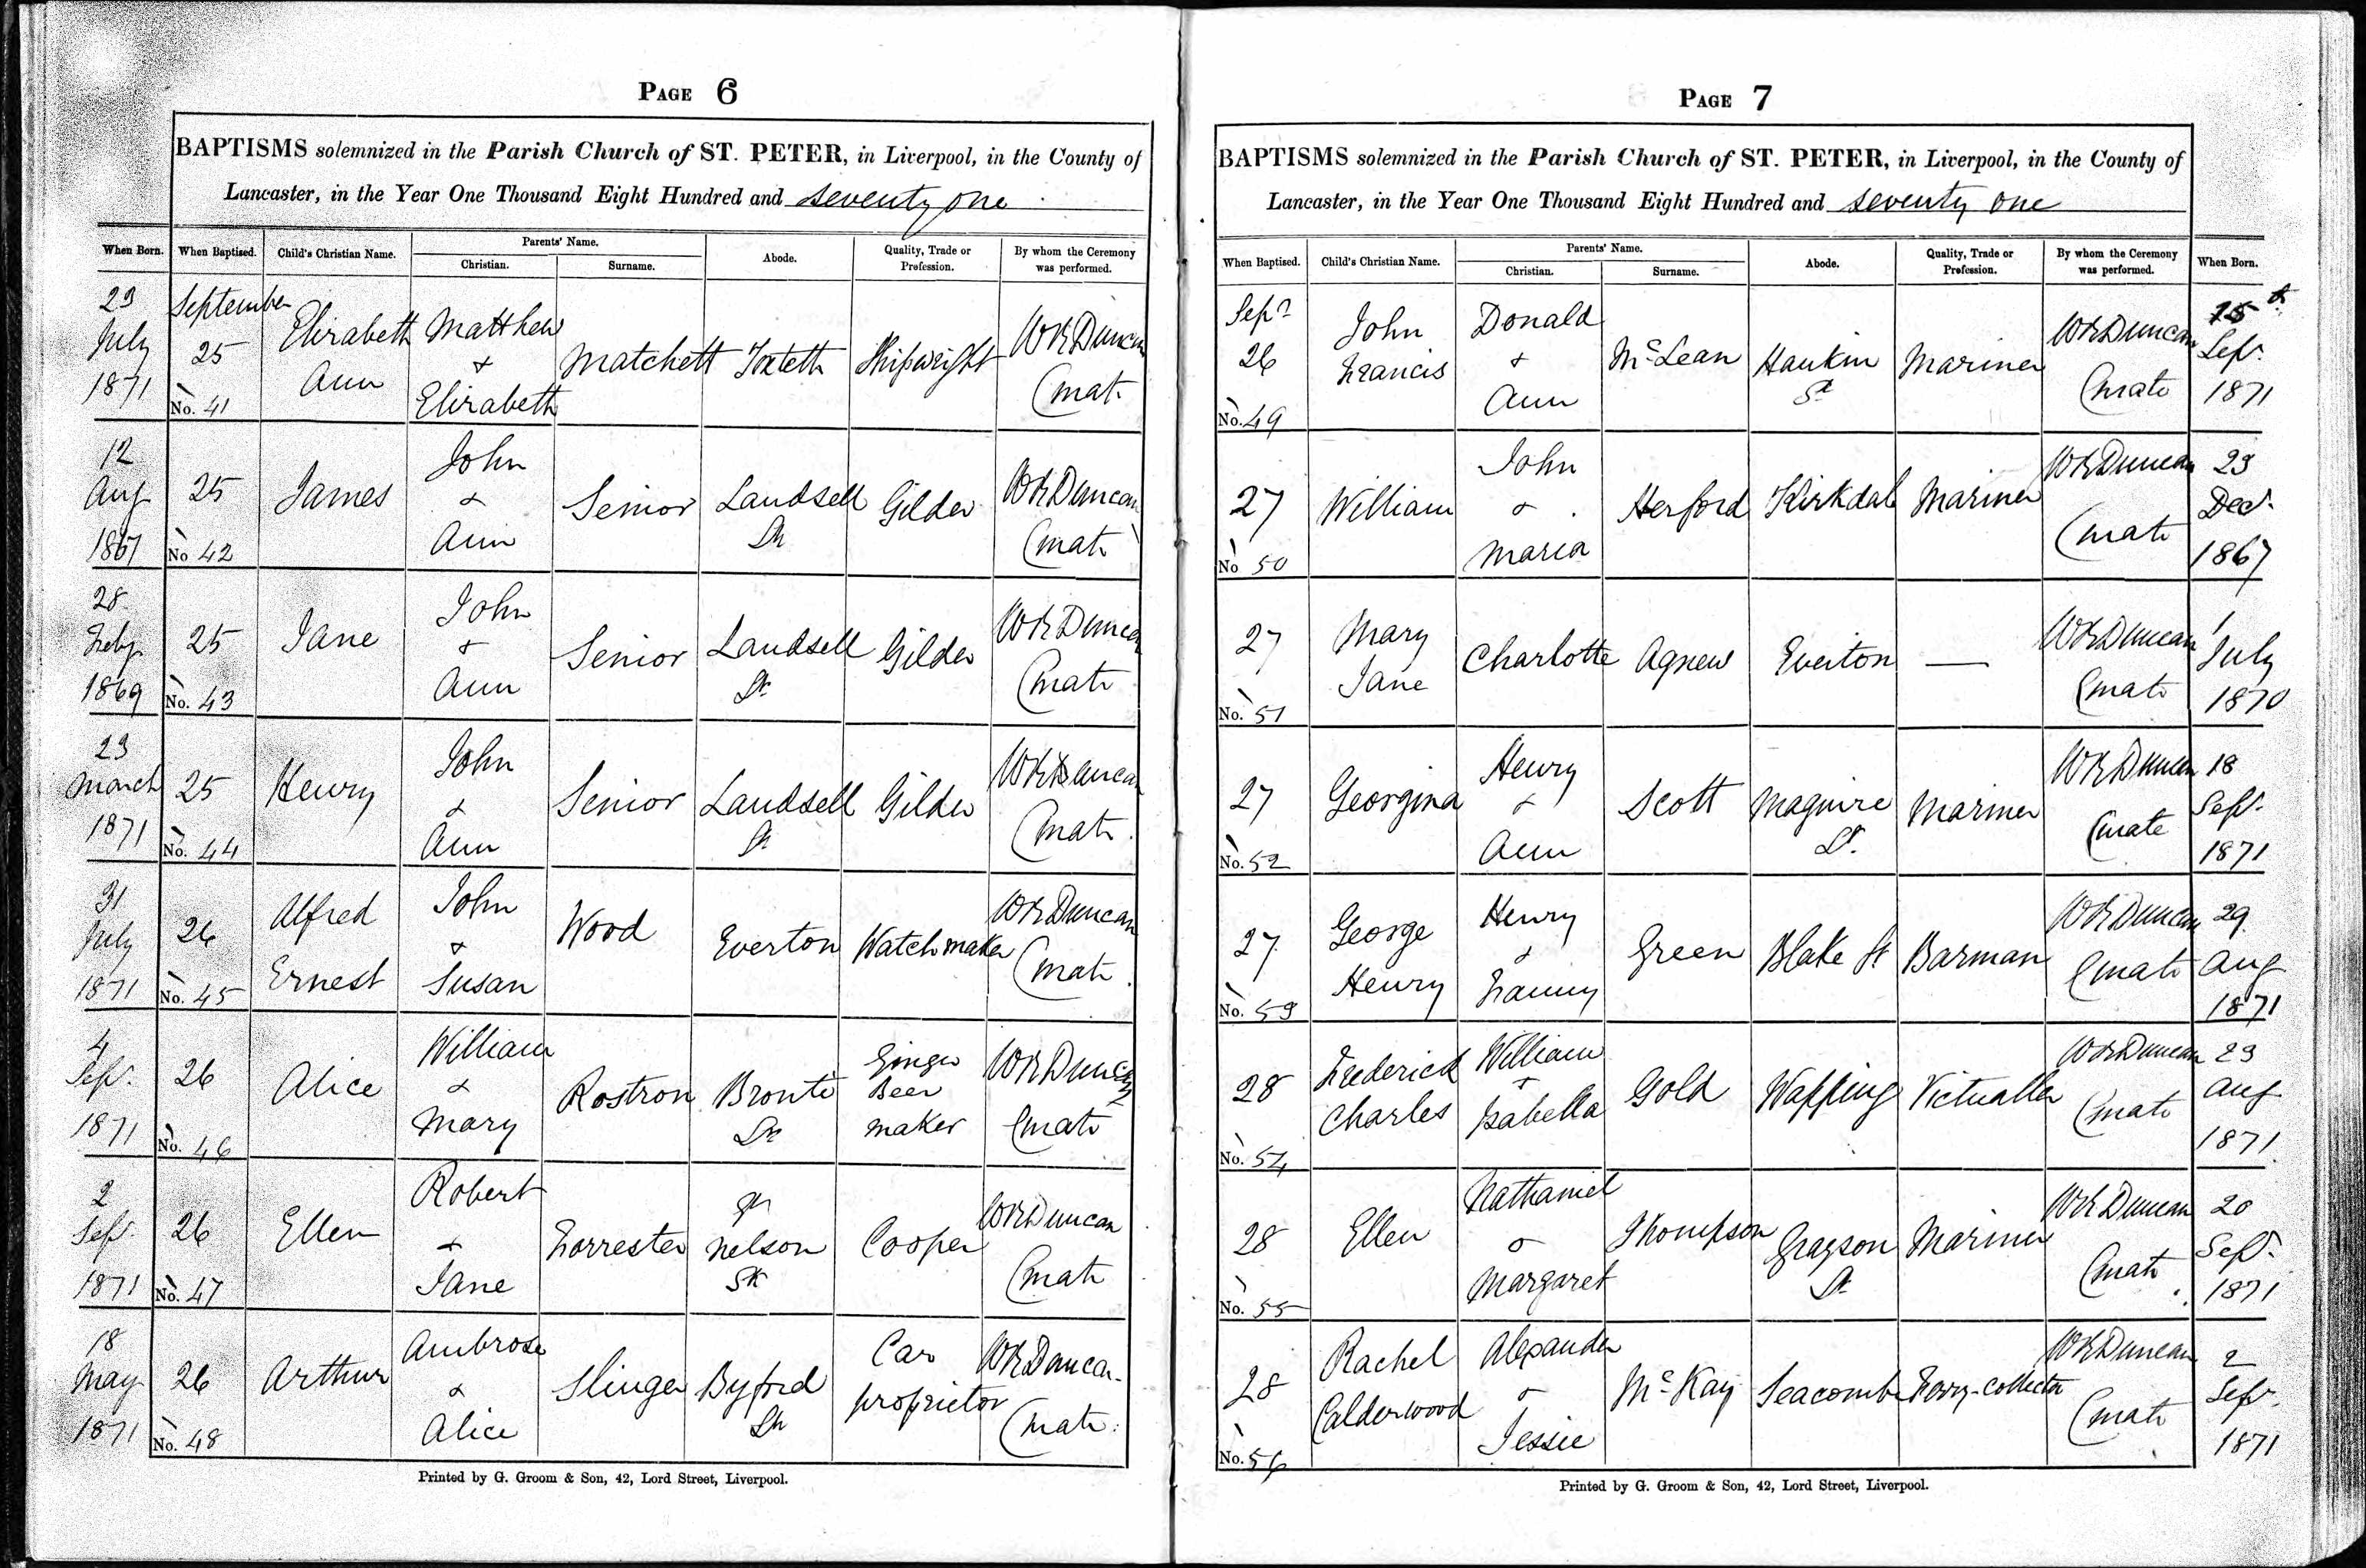 PAGE 6
BAPTISMS solemnized in the Parish Church of ST. PETER, in Liverpool, in the County of
Lancaster, in the Year One Thousand Eight Hundred and seventy one
When Born. When Baptised. Child's Christian Name. Parents' Name. Christian. Surname. Abode. Quality, Trade or Profession. By whom the Ceremony was performed.
23 July 1871 September 25 No. 41 Elizabeth Ann Matthew & Elizabeth Matchett Toxteth Shipwright WR Duncan Curate
12 Aug 1867 25 No 42 James John & Ann Senior Landsell St Gilder WR Duncan Curate
28 Feby 1869 25 No. 43 Jane John & Ann Senior Landsell St Gilder WR Duncan Curate
23 March 1871 25 No. 44 Henry John & Ann Senior Landsell St Gilder WR Duncan Curate
31 July 1871 26 No. 45 Alfred Ernest John & Susan Wood Everton Watchmaker WR Duncan Curate
4 Sept. 1871 26 No. 46 Alice William & Mary Rostron Bronte St Ginger Beer maker WR Duncan Curate
2 Sept. 1871 26 No. 47 Ellen Robert & Jane Forrester Gt Nelson St Cooper WR Duncan Curate
18 May 1871 26 No. 48 Arthur Ambrose & Alice Slinger Byford St Car proprietor WR Duncan Curate
Printed by G. Groom & Son, 42, Lord Street, Liverpool.
PAGE 7
BAPTISMS solemnized in the Parish Church of ST. PETER, in Liverpool, in the County of
Lancaster, in the Year One Thousand Eight Hundred and seventy one
When Baptised. Child's Christian Name. Parents' Name. Christian. Surname. Abode. Quality, Trade or Profession. By whom the Ceremony was performed. When Born.
Sept 26 No. 49 John Francis Donald & Ann McLean Hankin St Mariner WR Duncan Curate 15th Sept. 1871
27 No 50 William John & Maria Herford Kirkdale Mariner WR Duncan Curate 23 Dec. 1867
27 No. 51 Mary Jane Charlotte Agnew Everton — WR Duncan Curate 1 July 1870
27 No. 52 Georgina Henry & Ann Scott Maguire St. Mariner WR Duncan Curate 18 Sept. 1871
27 No. 53 George Henry Henry & Fanny Green Blake St Barman WR Duncan Curate 29 Aug 1871
28 No. 54 Frederick Charles William & Isabella Gold Wapping Victualler WR Duncan Curate 23 Aug 1871
28 No. 55 Ellen Nathaniel & Margaret Thompson Grayson St Mariner WR Duncan Curate 20 Sept. 1871
28 No. 56 Rachel Calderwood Alexander & Jessie McKay Seacombe Ferry-collector WR Duncan Curate 2 Sept. 1871
Printed by G. Groom & Son, 42, Lord Street, Liverpool.